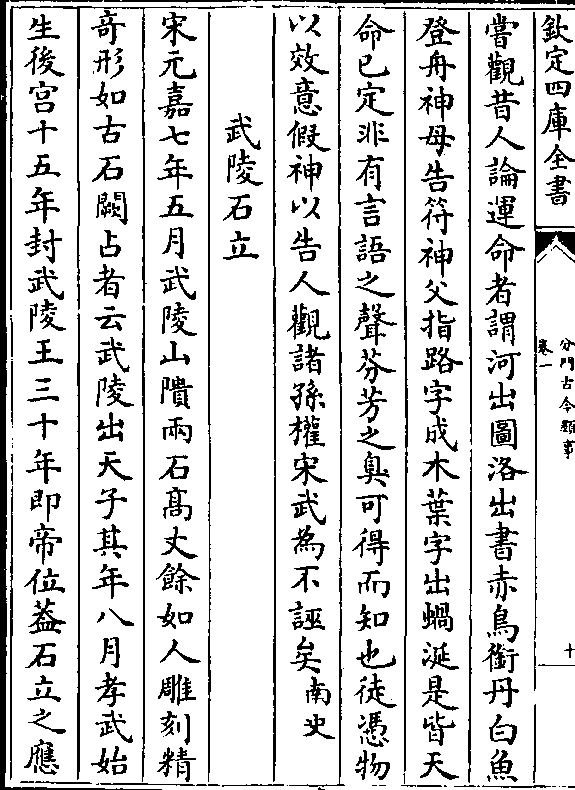 欽定四庫全書
分門古今類事
卷一
十
嘗觀昔人論運命者謂河出圖洛出書赤鳥銜丹白魚
登舟神母告符神父指路字成木葉字出蝸涎是皆天
命已定非有言語之聲芬芳之臭可得而知也徒憑物
以效意假神以告人觀諸孫權宋武為不誣矣南史
武陵石立
宋元嘉七年五月武陵山隤兩石高丈餘如人雕刻精
竒形如古石闕占者云武陵出天子其年八月孝武始
生後宫十五年封武陵王三十年即帝位葢石立之應